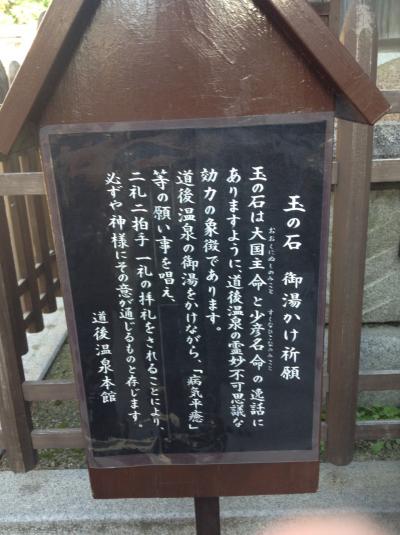 玉の石 御湯かけ祈願
玉の石は大国主命と少彦名命の逸話に
おおくにぬしのみこと すくなひこなのみこと
ありますように、道後温泉の霊妙不可思議な
効力の象徴であります。
道後温泉の御湯をかけながら、「病気平癒」
等の願い事を唱え、
二礼二拍手一礼の拝礼をされることにより、
必ずや神様にその意が通じるものと存じます。
道後温泉本館